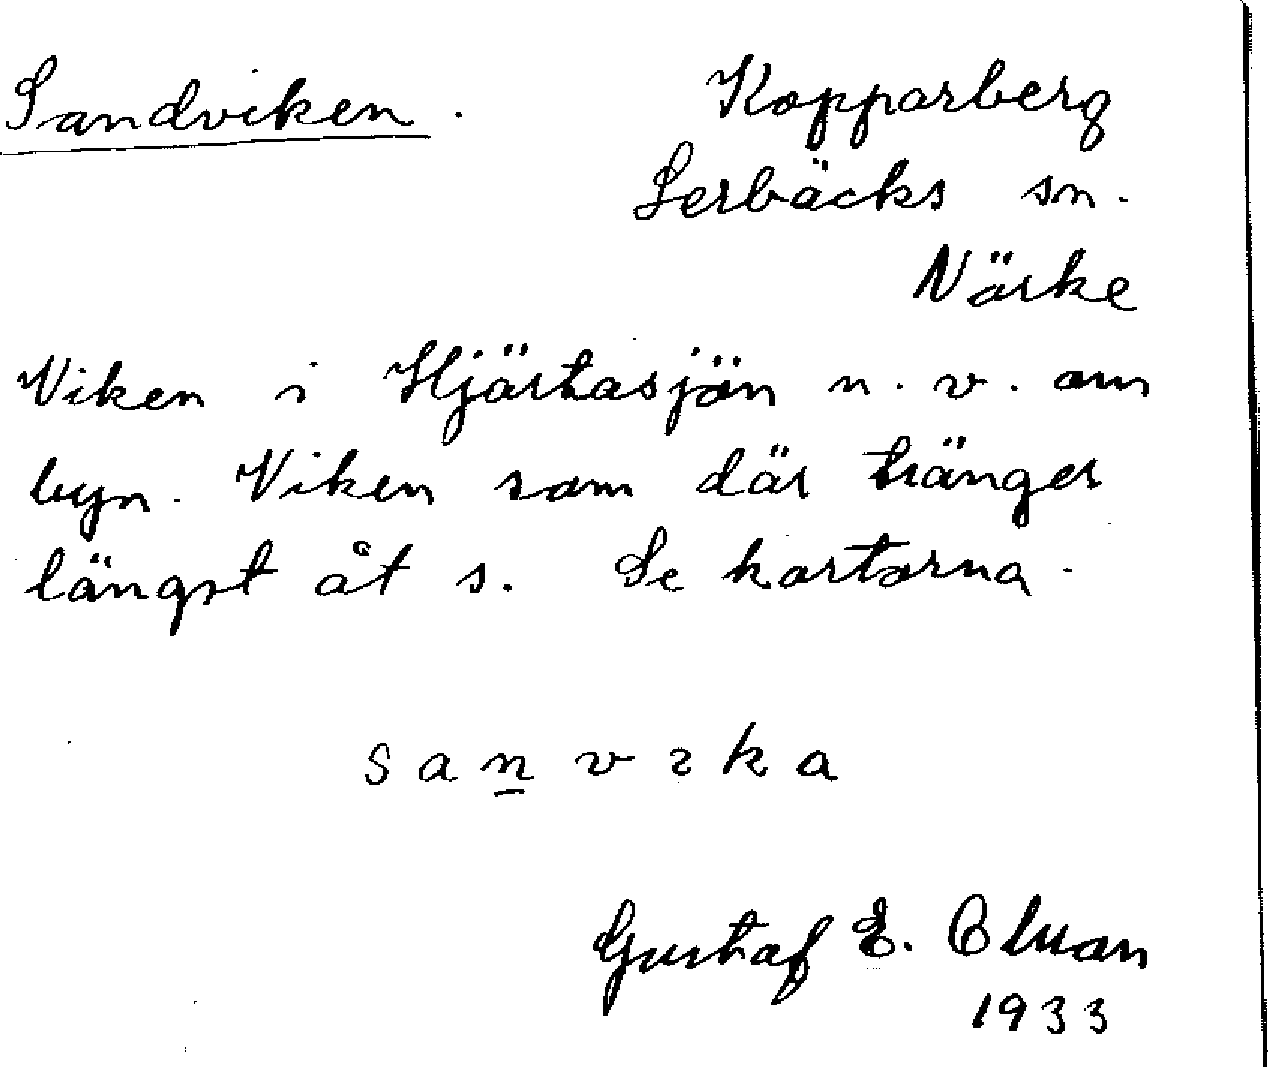 Sandviken. Kopparberg
Lerbäcks sn.
Närke
Viken i Hjärtasjön n. v. om
byn. Viken som där tränger
längst åt s. Se kartorna.
s a n v ɩ k a
Gustaf E.
1933